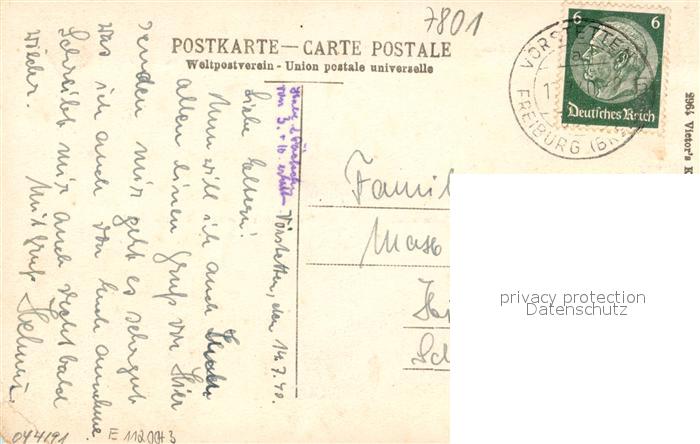 7801
POSTKARTE — CARTE POSTALE
Weltpostverein - Union postale universelle
6 6
Deutsches Reich
VORSTETTEN
FREIBURG (BR
2964 Victor's K
Vorstetten, den 14.3.40.
Liebe Eltern!
Nun will ich auch Euch
allen einen Gruß von hier
senden mir geht es sehr gut
was ich auch von Euch annehme.
Schreibt mir auch recht bald
wieder.
Mit Gruß Helmut
Famil
Max
privacy protection
Datenschutz
044191